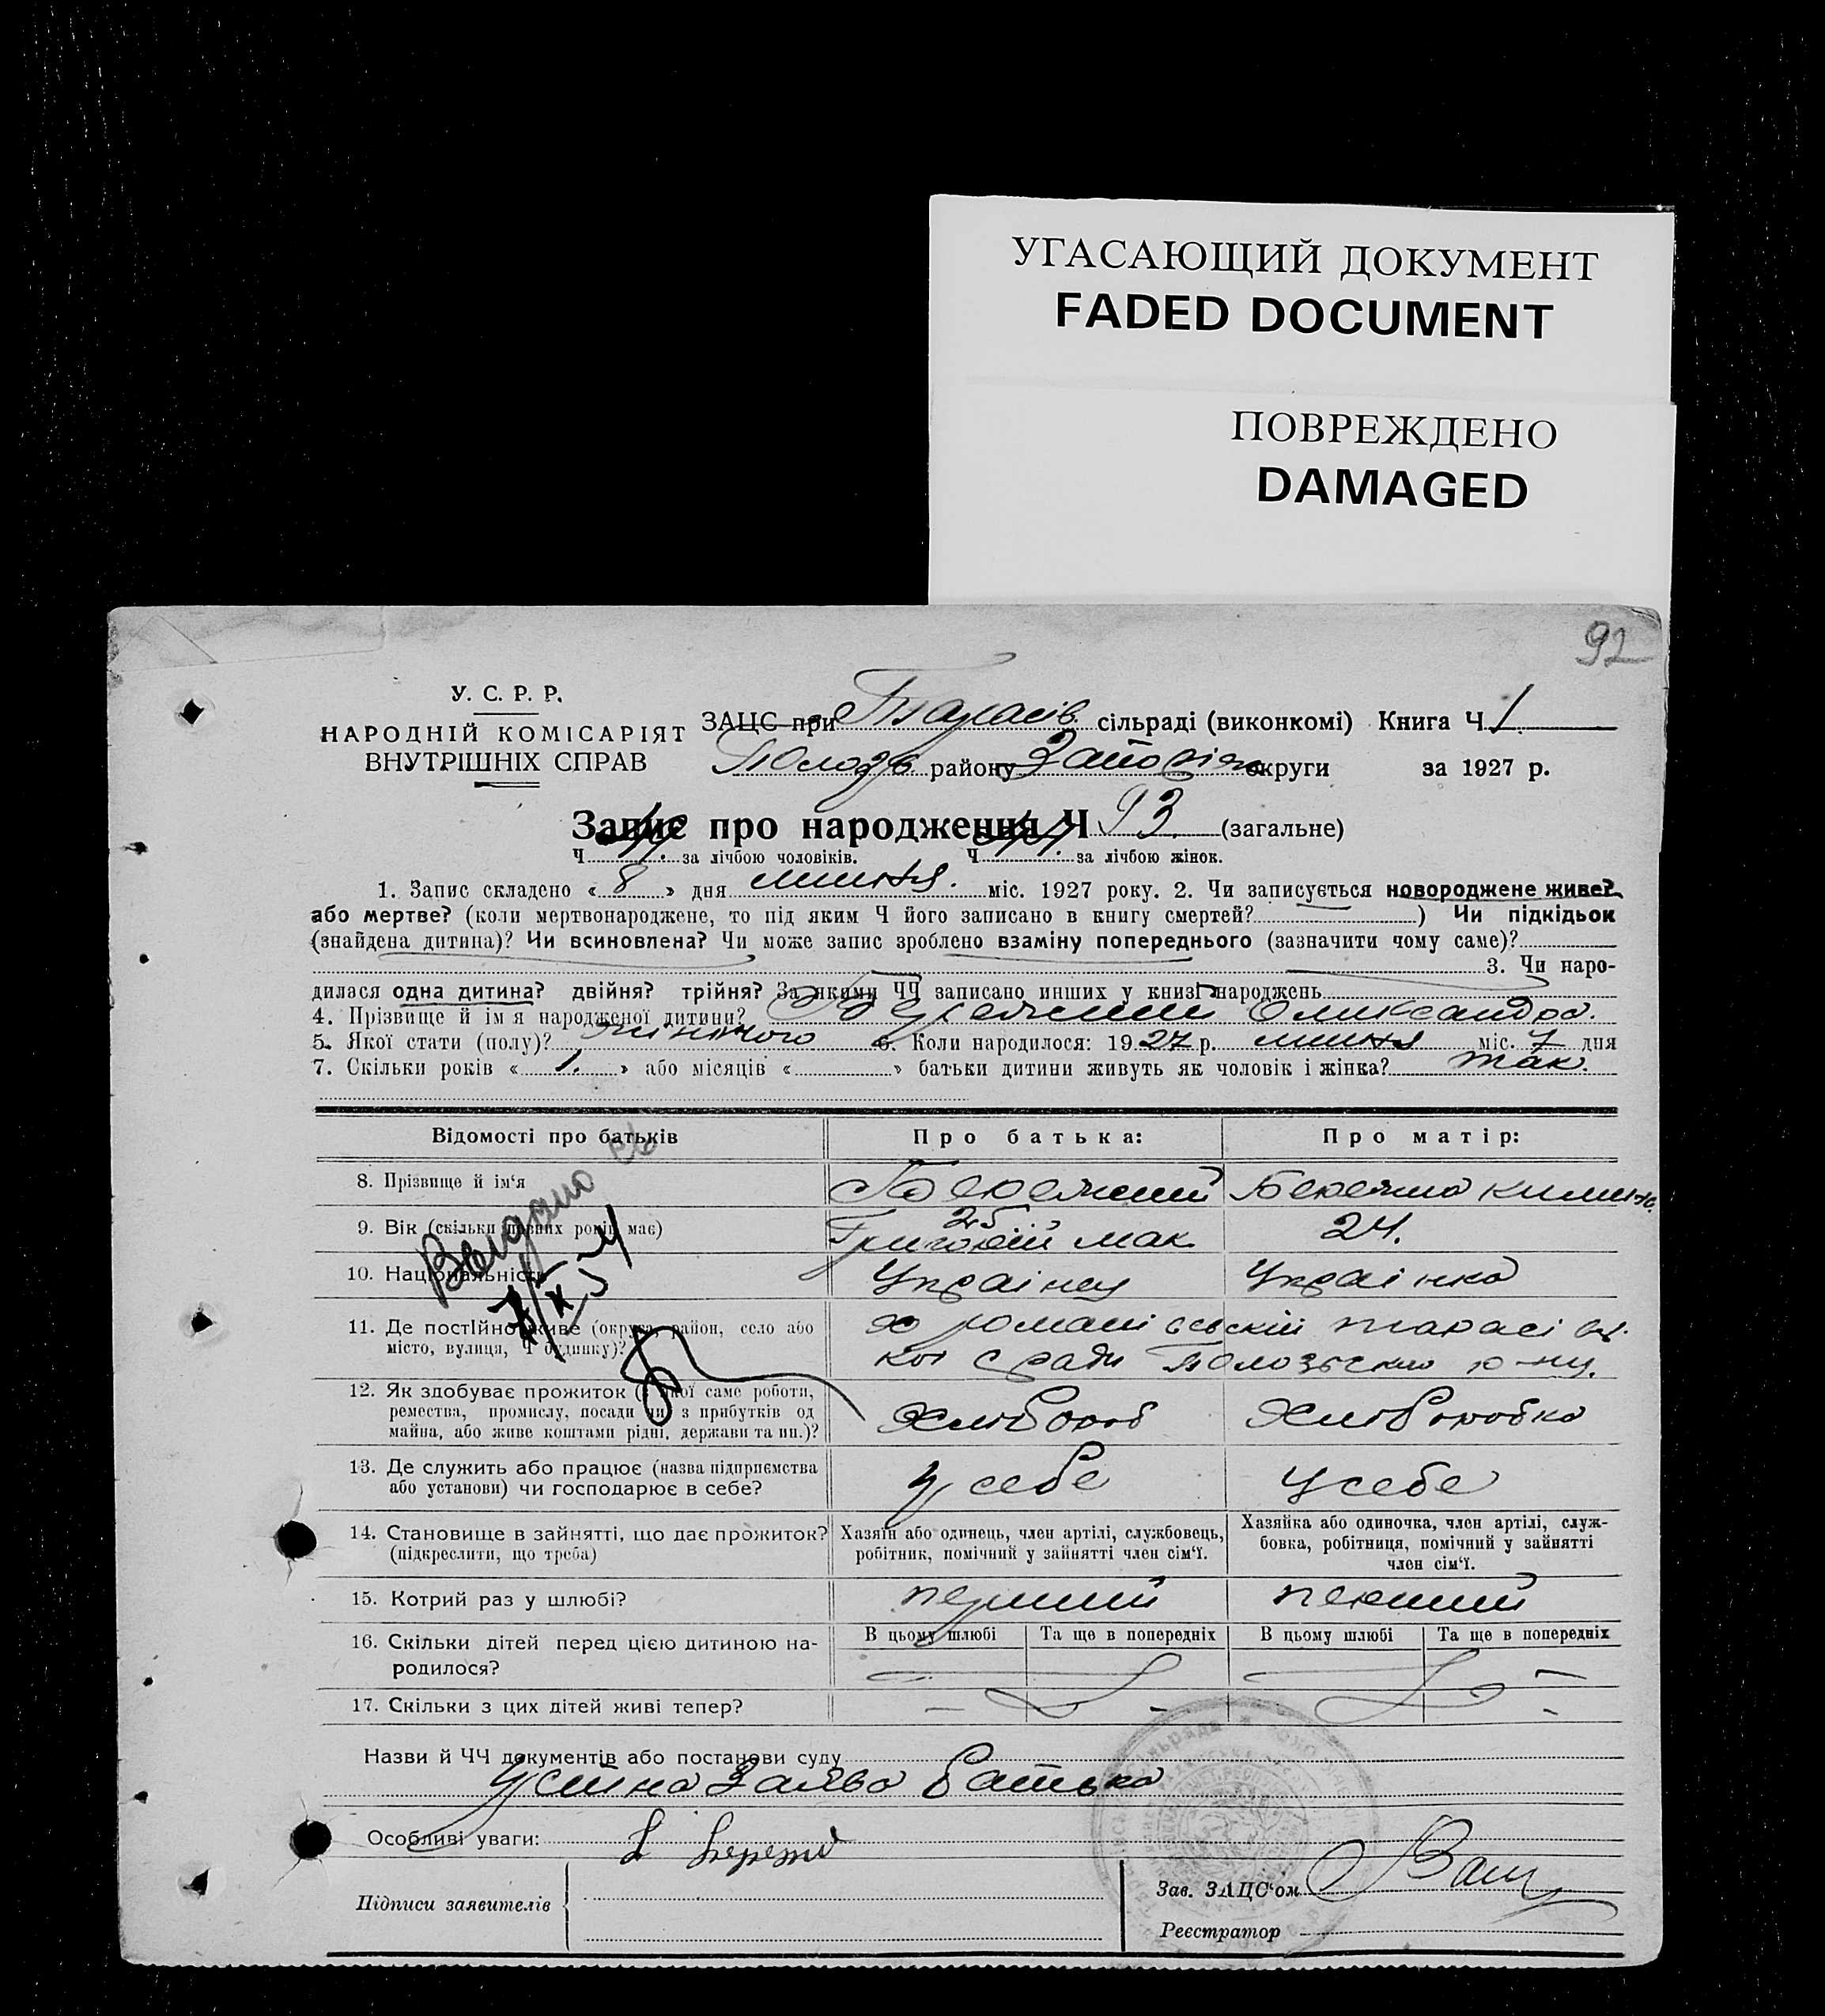 УГАСАЮЩИЙ ДОКУМЕНТ
FADED DOCUMENT
ПОВРЕЖДЕНО
DAMAGED
92
У. С. Р. Р.
НАРОДНІЙ КОМІСАРІЯТ
ВНУТРІШНІХ СПРАВ
ЗАЦС при Тарасів. сільраді (виконкомі) Книга Ч 1
району округи за 1927 р.
Запис про народження Ч 93 (загальне)
Ч за лічбою чоловіків. Ч за лічбою жінок.
1. Запис складено « 8 » дня липня. міс. 1927 року. 2. Чи записується новороджене живе?
або мертве? (коли мертвонароджене, то під яким Ч його записано в книгу смертей? ) Чи підкідьок
(знайдена дитина)? Чи всиновлена? Чи може запис зроблено взаміну попереднього (зазначити чому саме)?
3. Чи наро-
дилася одна дитина? двійня? трійня? За якими ЧЧ записано инших у книзі народжень
4. Прізвище й ім'я народженої дитини? Олександра.
5. Якої стати (полу)? жіночого 6. Коли народилося: 1927 р. липня міс. 7 дня
7. Скільки років « 1. » або місяців « » батьки дитини живуть як чоловік і жінка? так.
Відомості про батьків
Про батька:
Про матір:
8. Прізвище й ім'я
9. Вік (скільки повних років має)
25
Григорій мак
24.
10. Національність
Украінец
Украінка
11. Де постійно живе (округа, район, село або
місто, вулиця, Ч будинку)?
12. Як здобуває прожиток (з якої саме роботи,
ремества, промислу, посади чи з прибутків од
майна, або живе коштами рідні, держави та ин.)?
Хлібороб
Хліборобка
13. Де служить або працює (назва підприємства
або установи) чи господарює в себе?
у себе
у себе
14. Становище в зайнятті, що дає прожиток?
(підкреслити, що треба)
Хазяїн або одинець, член артілі, службовець,
робітник, помічний у зайнятті член сім'ї.
Хазяйка або одиночка, член артілі, служ-
бовка, робітниця, помічний у зайнятті
член сім'ї.
15. Котрий раз у шлюбі?
перший
перший
16. Скільки дітей перед цією дитиною на-
родилося?
В цьому шлюбі
Та ще в попередніх
В цьому шлюбі
Та ще в попередніх
17. Скільки з цих дітей живі тепер?
Назви й ЧЧ документів або постанови суду
Устна Заява батька
Особливі уваги:
Підписи заявителів
Зав. ЗАЦС'ом
Реєстратор